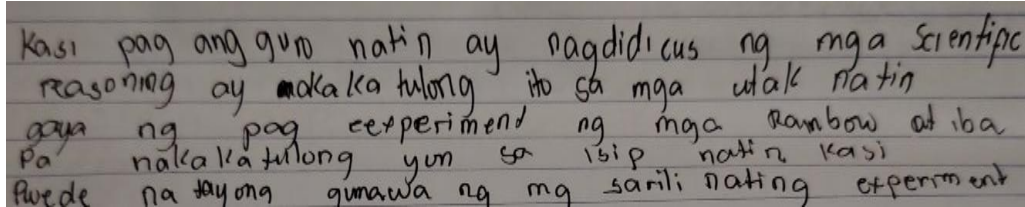 Kasi pag ang guro natin ay nagdidicus ng mga Scientific
reasoning ay makaka tulong ito sa mga utak natin
gaya ng pag eexperimend ng mga Rambow at iba
Pa nakakatulong yun sa isip natin kasi
Pwede na tayong gumawa ng mg sarili nating experiment